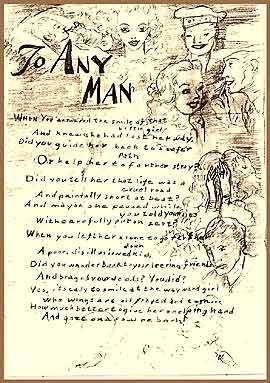 To Any
Man
When you answered the smile of that
little girl
And knew she had lost her way,
Did you guide her back to a safer
path
Or help her to further stray?
Did you tell her that life was a
cruel road
And painfully short at best?
And maybe she paused while
you told your lies
With carefully put on zest?
When you left her alone to go
down
A poor, disillusioned kid,
Did you wander back to your leering friends
And brag of your deeds? You did?
Yes, it's easy to smile at the wayward girl
Who wings are all frayed but
How much better to give her one helping hand
And